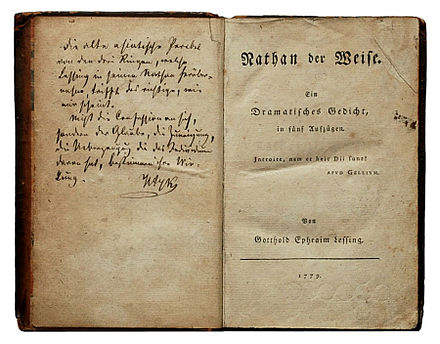 Die alte asiatische Parabel
von den drei Ringen, welche
Lessing in seinem Nathan
trifft das einzige, wie
mir scheint.
Nicht die Confession an sich,
sondern der Glaube, die Zuneigung,
die Ueberzeugung die das Individuum
daran hat, bestimmen ihre Wir-
kung.
Nathan der Weise.
Ein
Dramatisches Gedicht,
in fünf Aufzügen.
Introite, nam et heic Dii sunt!
APVD GELLIVM.
Von
Gotthold Ephraim Lessing.
1779.